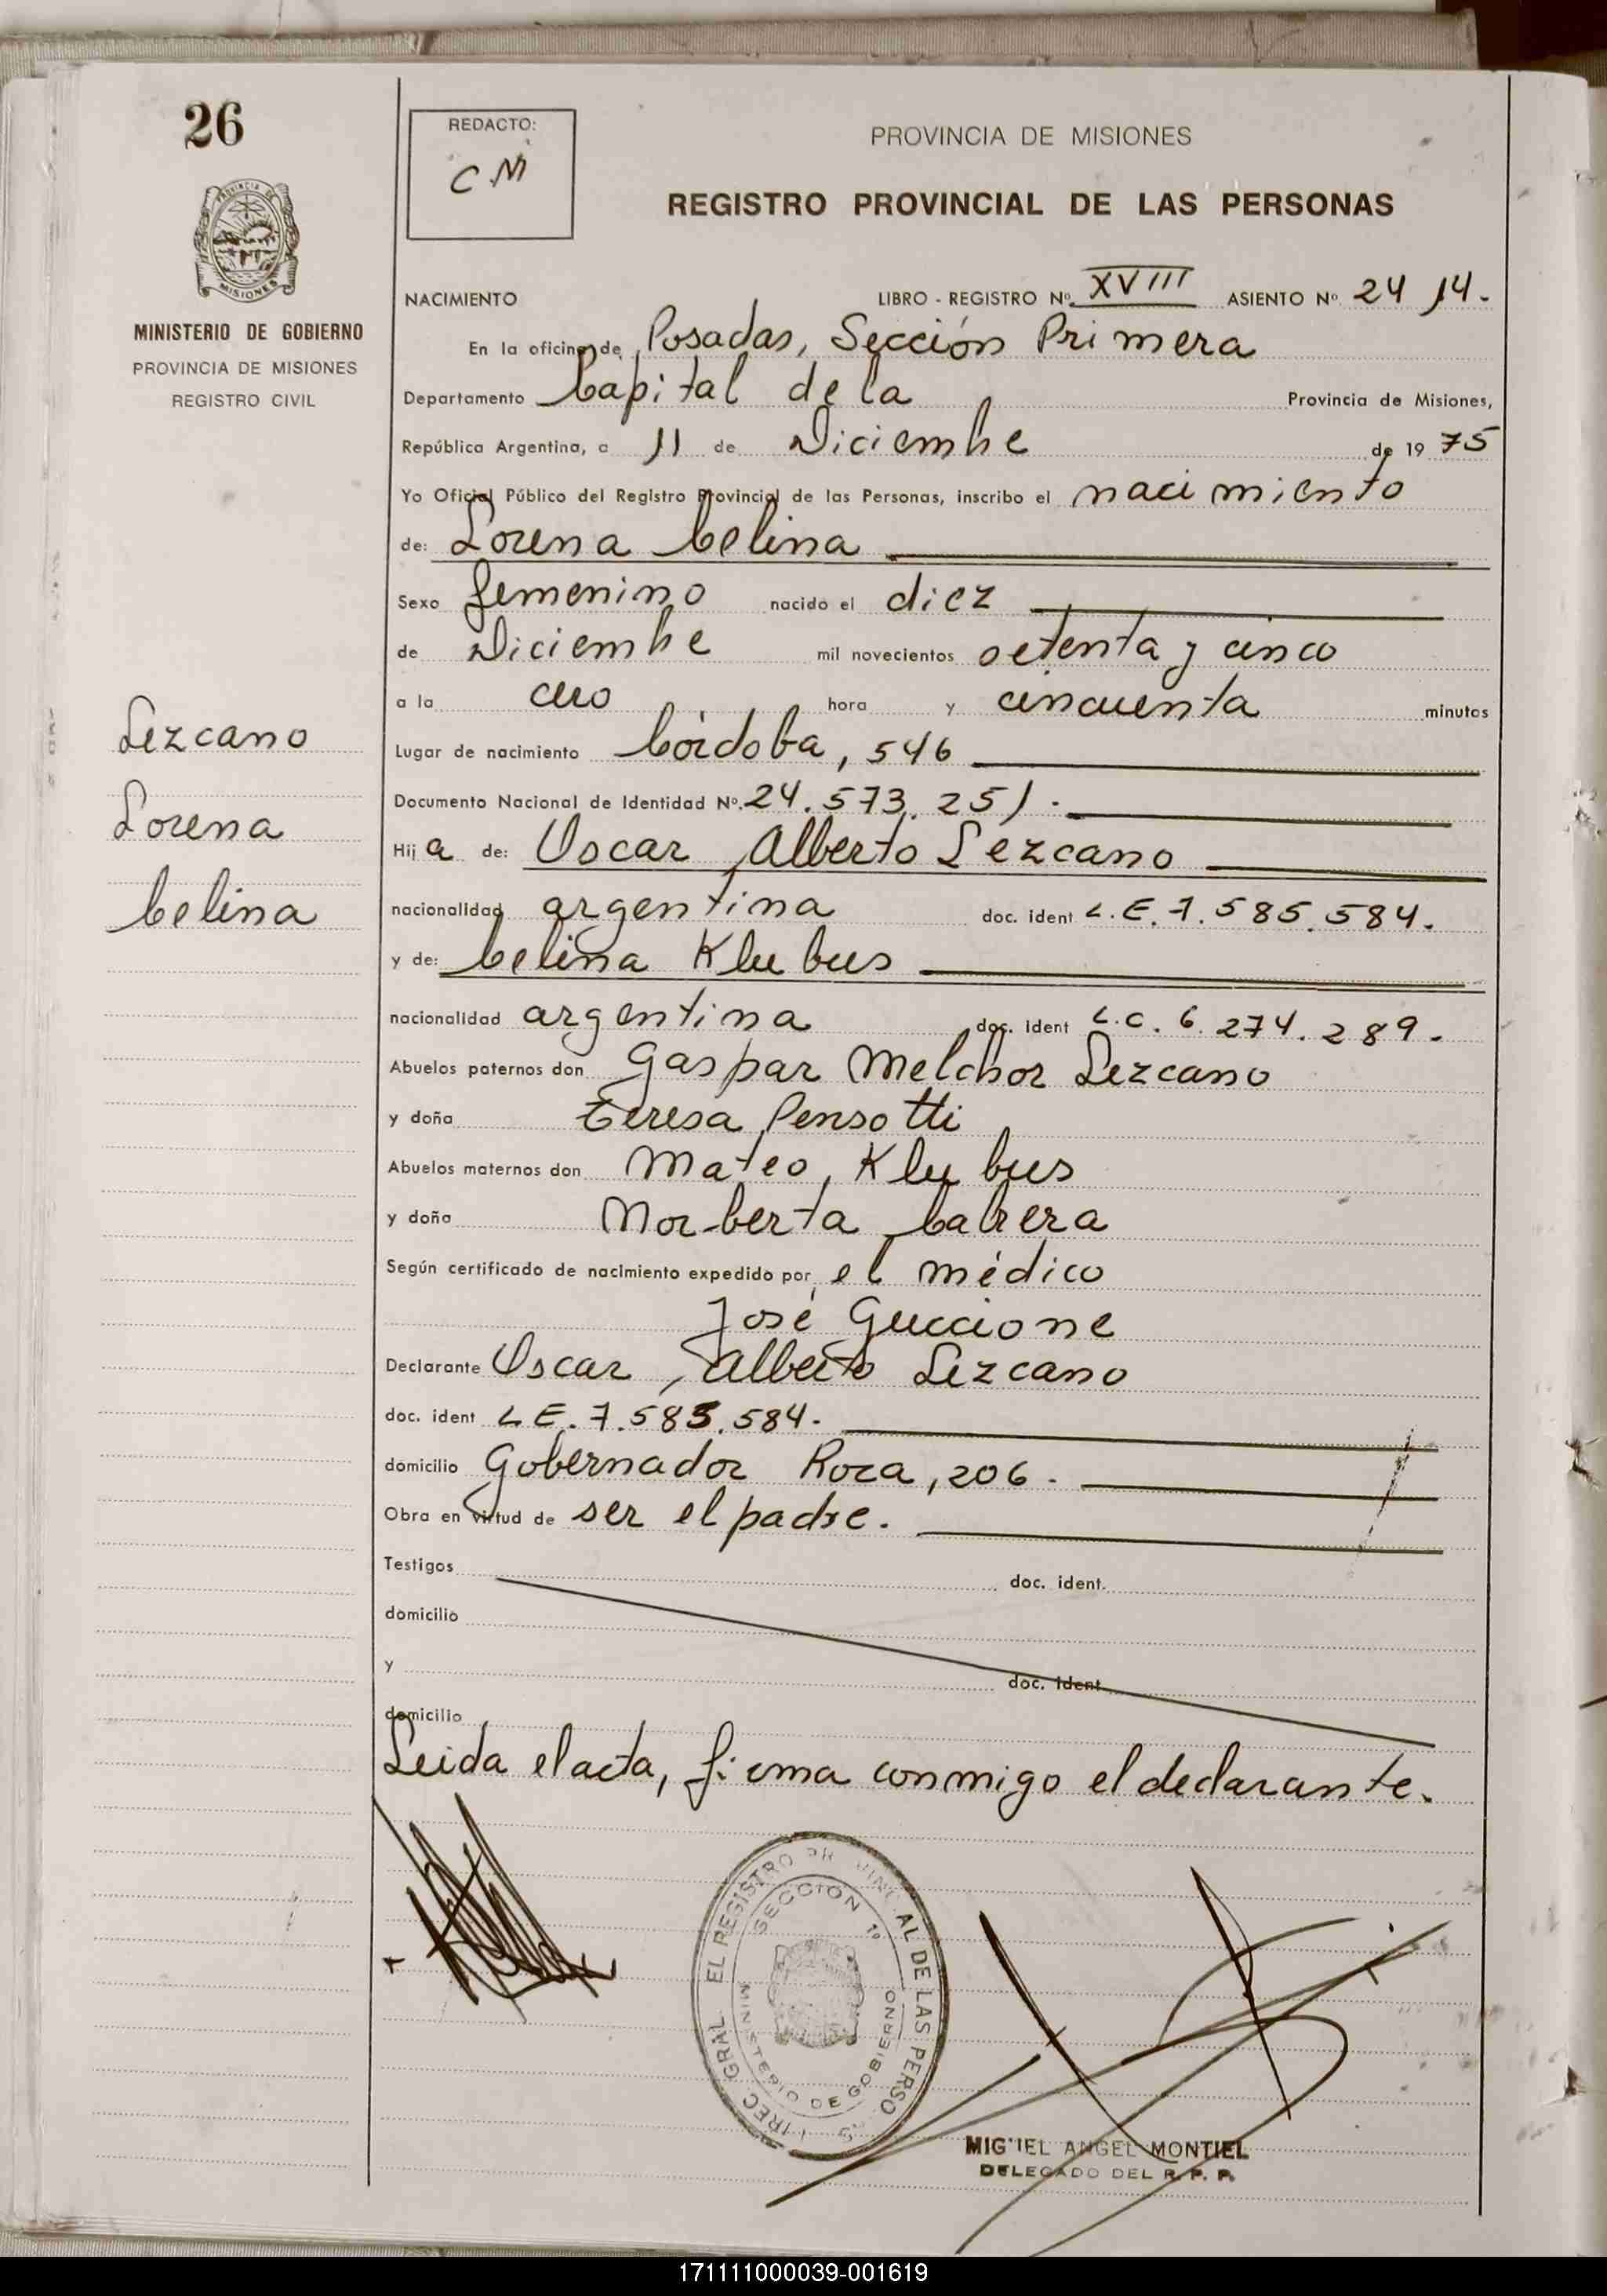 26
REDACTO:
C M
PROVINCIA DE MISIONES
REGISTRO PROVINCIAL DE LAS PERSONAS
MISIONES
MINISTERIO DE GOBIERNO
PROVINCIA DE MISIONES
REGISTRO CIVIL
NACIMIENTO LIBRO - REGISTRO Nº XVIII ASIENTO Nº 2414.
En la oficina de Posadas, Sección Primera
Departamento Capital de la Provincia de Misiones,
República Argentina, a 11 de Diciembre de 1975
Yo Oficial Público del Registro Provincial de las Personas, inscribo el nacimiento
de: Lorena Celina
Sexo femenino nacido el diez
de Diciembre mil novecientos setenta y cinco
a la cero hora y cincuenta minutos
Lugar de nacimiento Córdoba, 546
Documento Nacional de Identidad Nº. 24.573.251.
Hija de: Oscar Alberto Lezcano
nacionalidad argentina doc. ident L.E. 7.585.584.
y de: Celina Klubus
nacionalidad argentina doc. ident L.C. 6.274.289.
Abuelos paternos don Gaspar Melchor Lezcano
y doña Teresa Pensotti
Abuelos maternos don Mateo Klubus
y doña Norberta Cabrera
Según certificado de nacimiento expedido por el médico
José Guccione
Declarante Oscar Alberto Lezcano
doc. ident L.E. 7.585.584.
domicilio Gobernador Roca, 206.
Obra en virtud de ser el padre.
Testigos doc. ident.
domicilio
y doc. ident
domicilio
Leida el acta, firma conmigo el declarante.
Lezcano
Lorena
Celina
SECCION 1º
MINISTERIO DE GOBIERNO
MIGUEL ANGEL MONTIEL
DELEGADO DEL R. P. P.
171111000039-001619